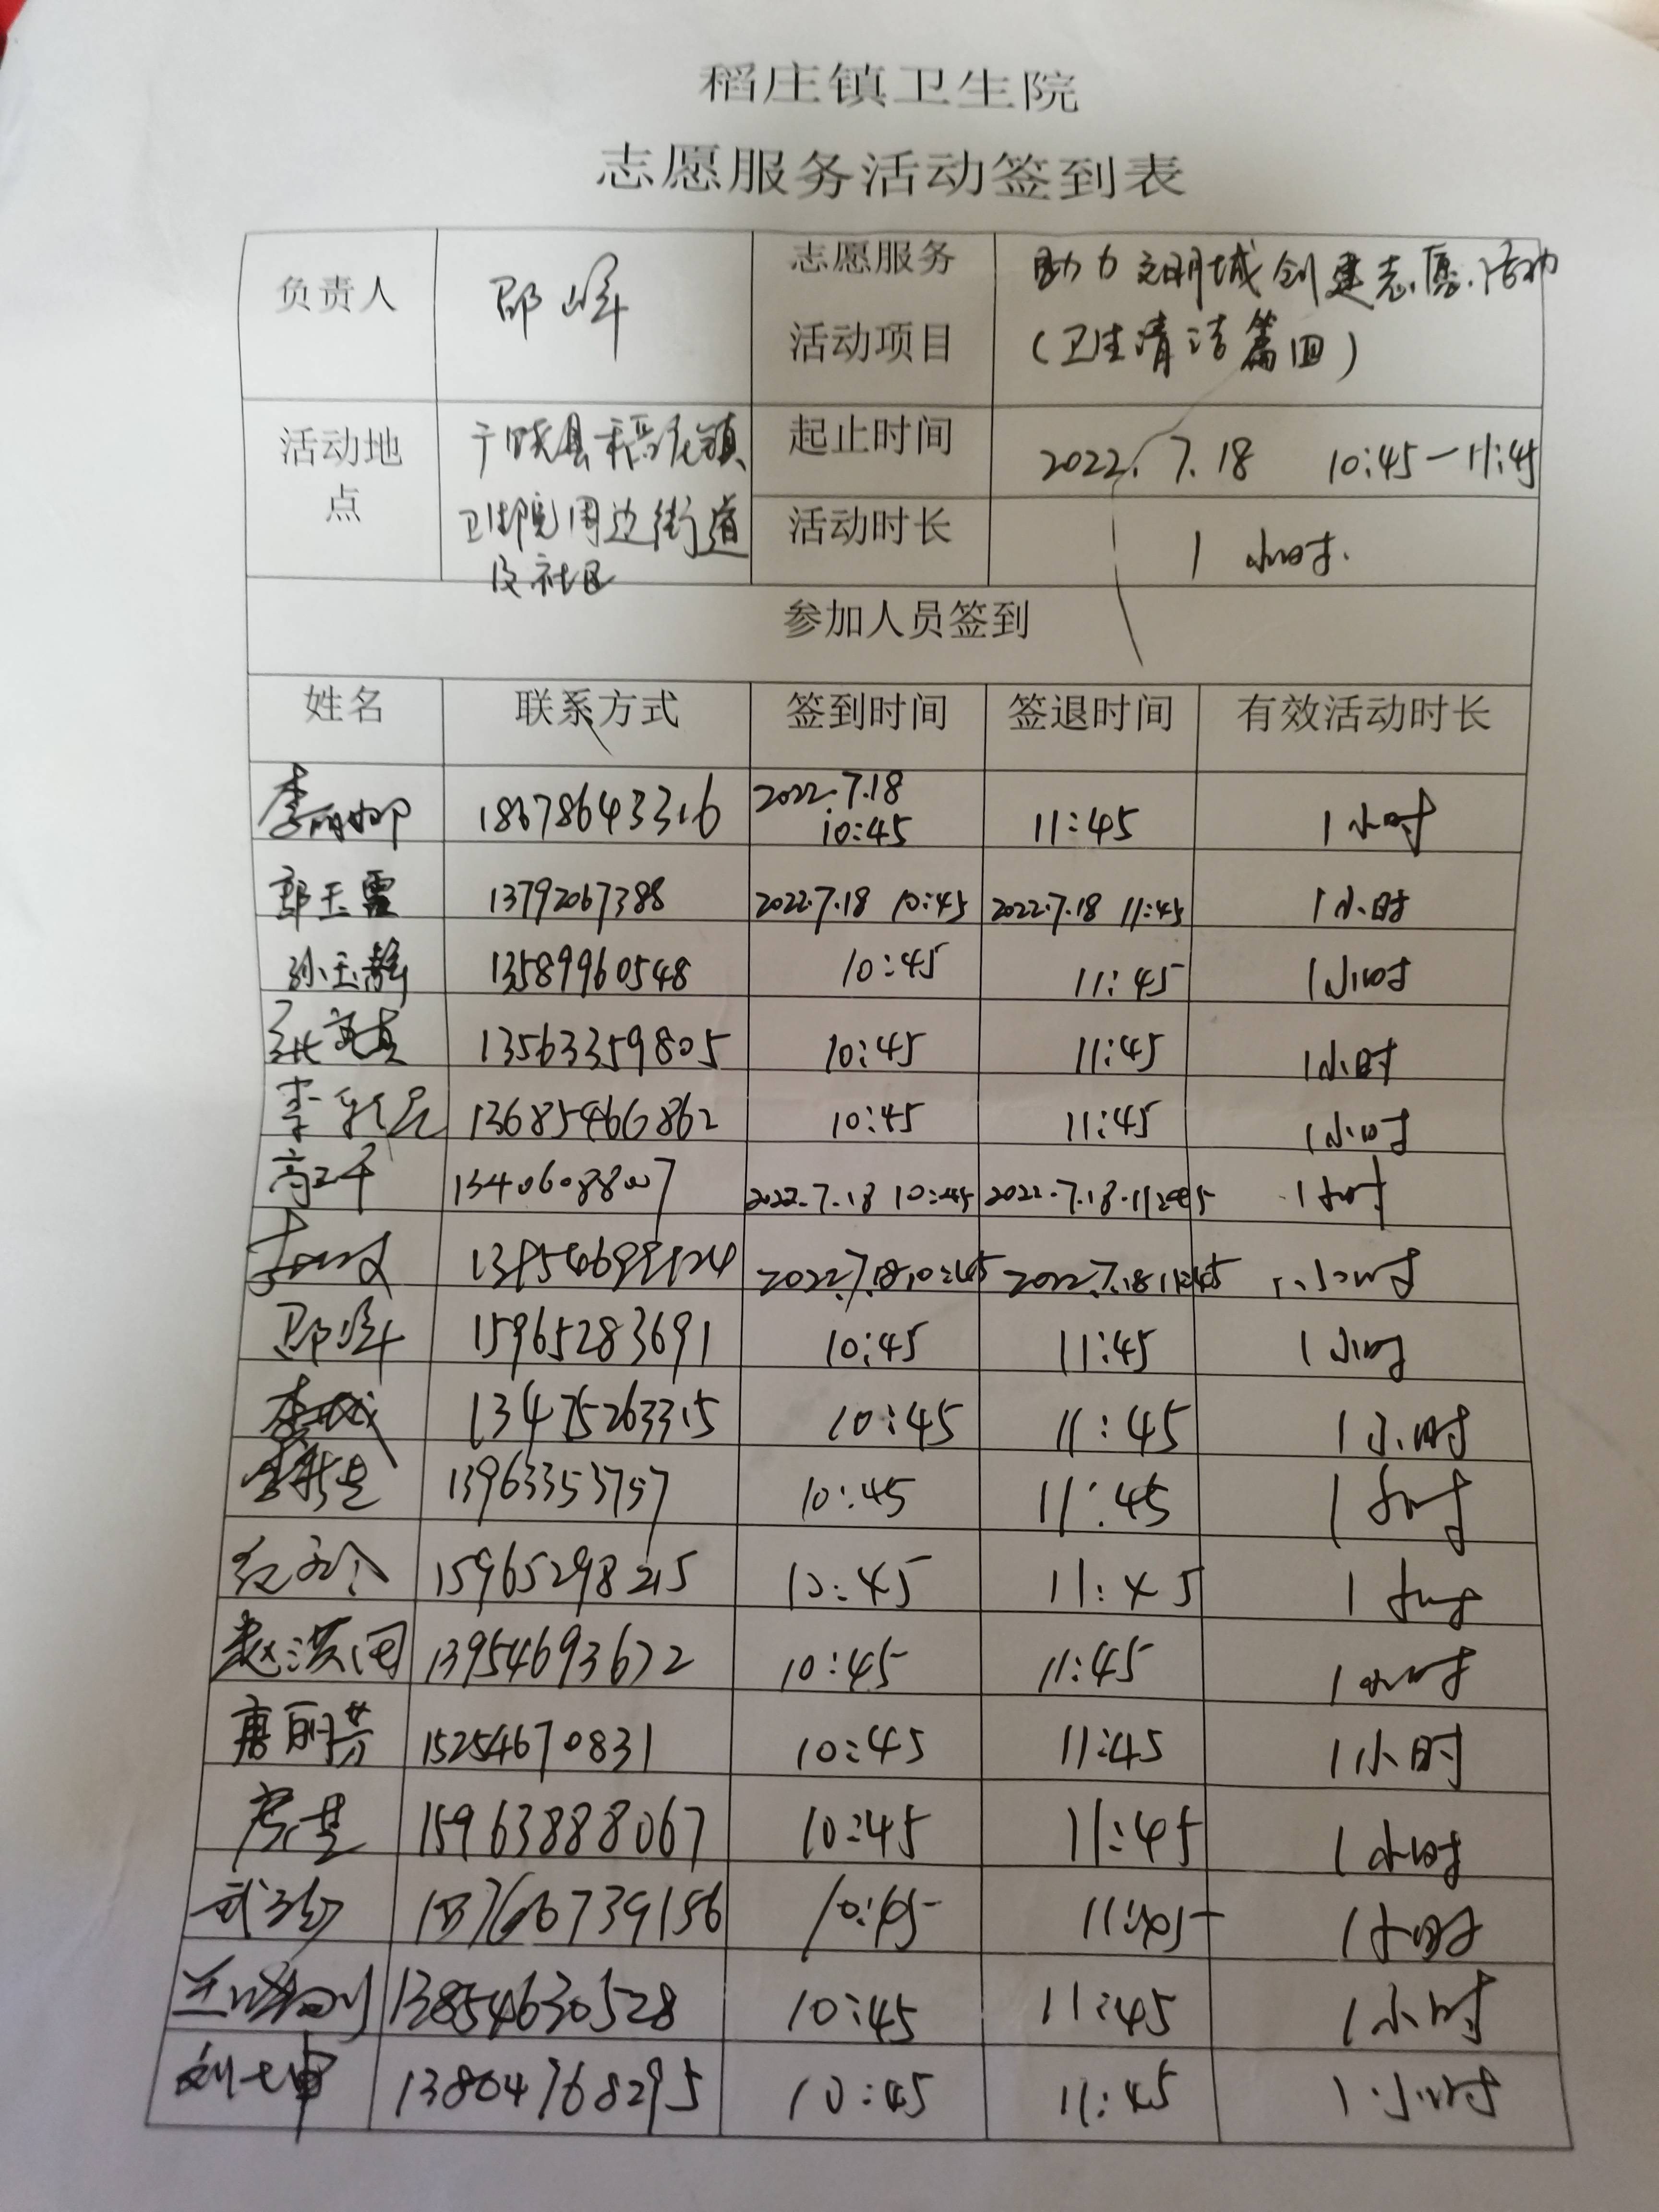 稻庄镇卫生院
志愿服务活动签到表
负责人 邵峰 志愿服务活动项目 助力文明城创建志愿活动
(卫生清洁篇四)
活动地点 广饶县稻庄镇
卫生院周边街道
及社区
起止时间 2022.7.18 10:45—11:45
活动时长 1小时.
参加人员签到
姓名 联系方式 签到时间 签退时间 有效活动时长
李丽娜 18678643316 2022.7.18 10:45 11:45 1小时
郭玉霞 13792067388 2022.7.18 10:45 2022.7.18 11:45 1小时
孙玉静 13589960548 10:45 11:45 1小时
13563359805 10:45 11:45 1小时
李 13685466862 10:45 11:45 1小时
13406088007 2022.7.18 10:45 2022.7.18 11:45 1小时
2022.7.18 10:45 2022.7.18 11:45 1小时
邵峰 15965283691 10:45 11:45 1小时
13475263315 10:45 11:45 1小时
13963353757 10:45 11:45 1小时
15965298215 10:45 11:45 1小时
赵洪国 13954693672 10:45 11:45 1小时
唐丽芬 15254670831 10:45 11:45 1小时
15963888067 10:45 11:45 1小时
武 10:45 11:45 1小时
13854630528 10:45 11:45 1小时
刘 13804768295 10:45 11:45 1小时